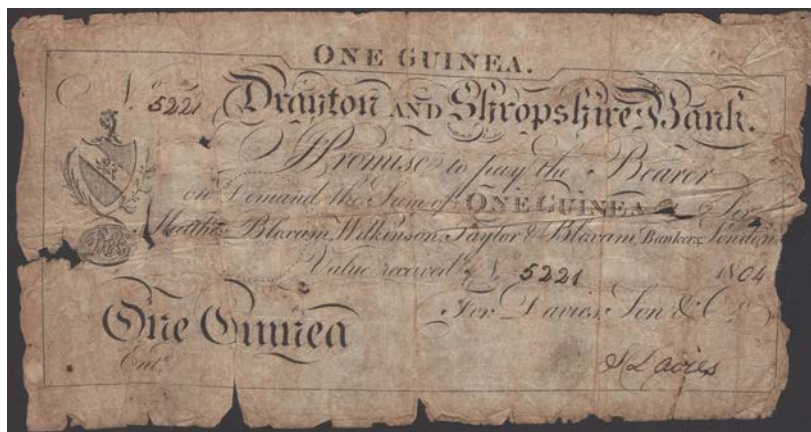 ONE GUINEA.
No 5221 Drayton AND Shropshire Bank.
I Promise to pay the Bearer
on Demand the Sum of ONE GUINEA
Bloxam, Wilkinson, Taylor & Bloxam, Bankers London
Value received No 5221 1804
One Guinea For Davies, Son & Co.
Entd
S Davies